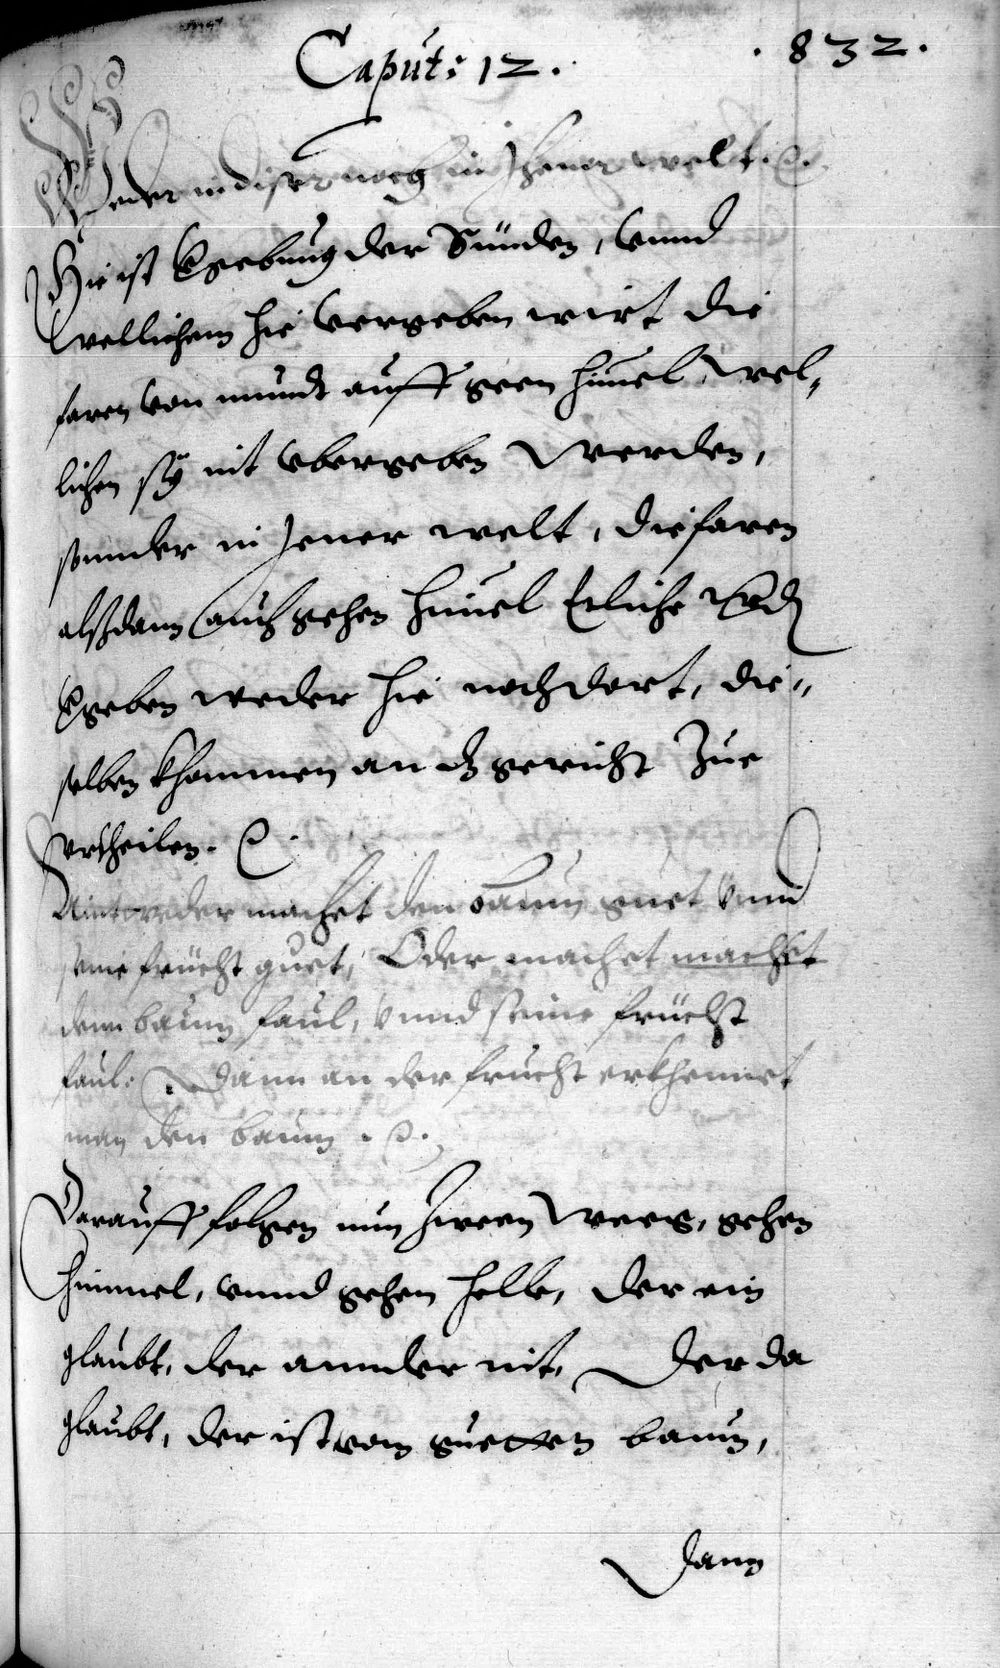 Caput: 12. . 832.
Weder in diser noch in Jhener welt. ꝛc.
Hie ist Vgebung der Sünden, vnnd
wellichem hie vergeben wirt die
faren von mundt auff geen himel, wel,
lichen sÿ nit vbergeben werden,
sonnder in Jener welt, die faren
alßdann auch gehen himel Etliche
Vgeben weder hie noch dort, die„
selben khommen an dz gericht Zue
vrtheilen. ꝛc.
Aintweder machet den baum guet vnnd
seine frücht guet, Oder machet machet
denn baum faul, vnnd seine frücht
faul. Dann an der frucht erkhennet
man den baum. ꝛc.
Darauff folgen nun zween weeg, gehen
himmel, vnnd gehen helle, der ein
glaubt, der annder nit, Der da
glaubt, der ist vom guetten baum,
Dann